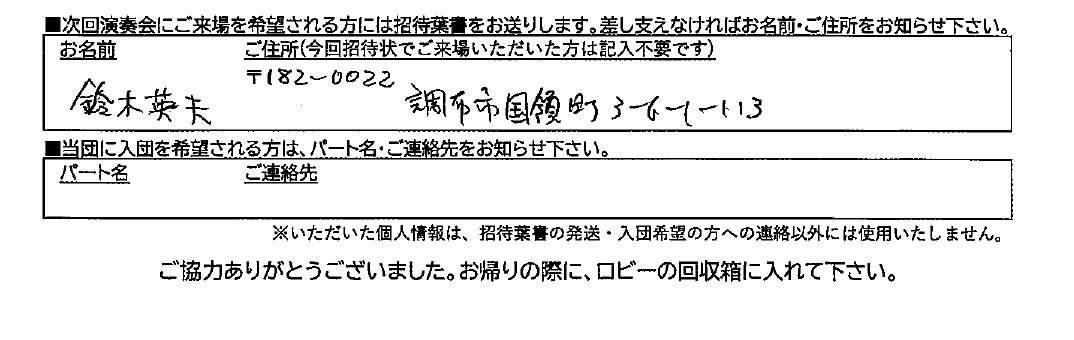 ■次回演奏会にご来場を希望される方には招待葉書をお送りします。差し支えなければお名前・ご住所をお知らせ下さい。
お名前 ご住所(今回招待状でご来場いただいた方は記入不要です)
〒182-0022
鈴木英夫 調布市国領町3-6-1-113
■当団に入団を希望される方は、パート名・ご連絡先をお知らせ下さい。
パート名 ご連絡先
※いただいた個人情報は、招待葉書の発送・入団希望の方への連絡以外には使用いたしません。
ご協力ありがとうございました。お帰りの際に、ロビーの回収箱に入れて下さい。